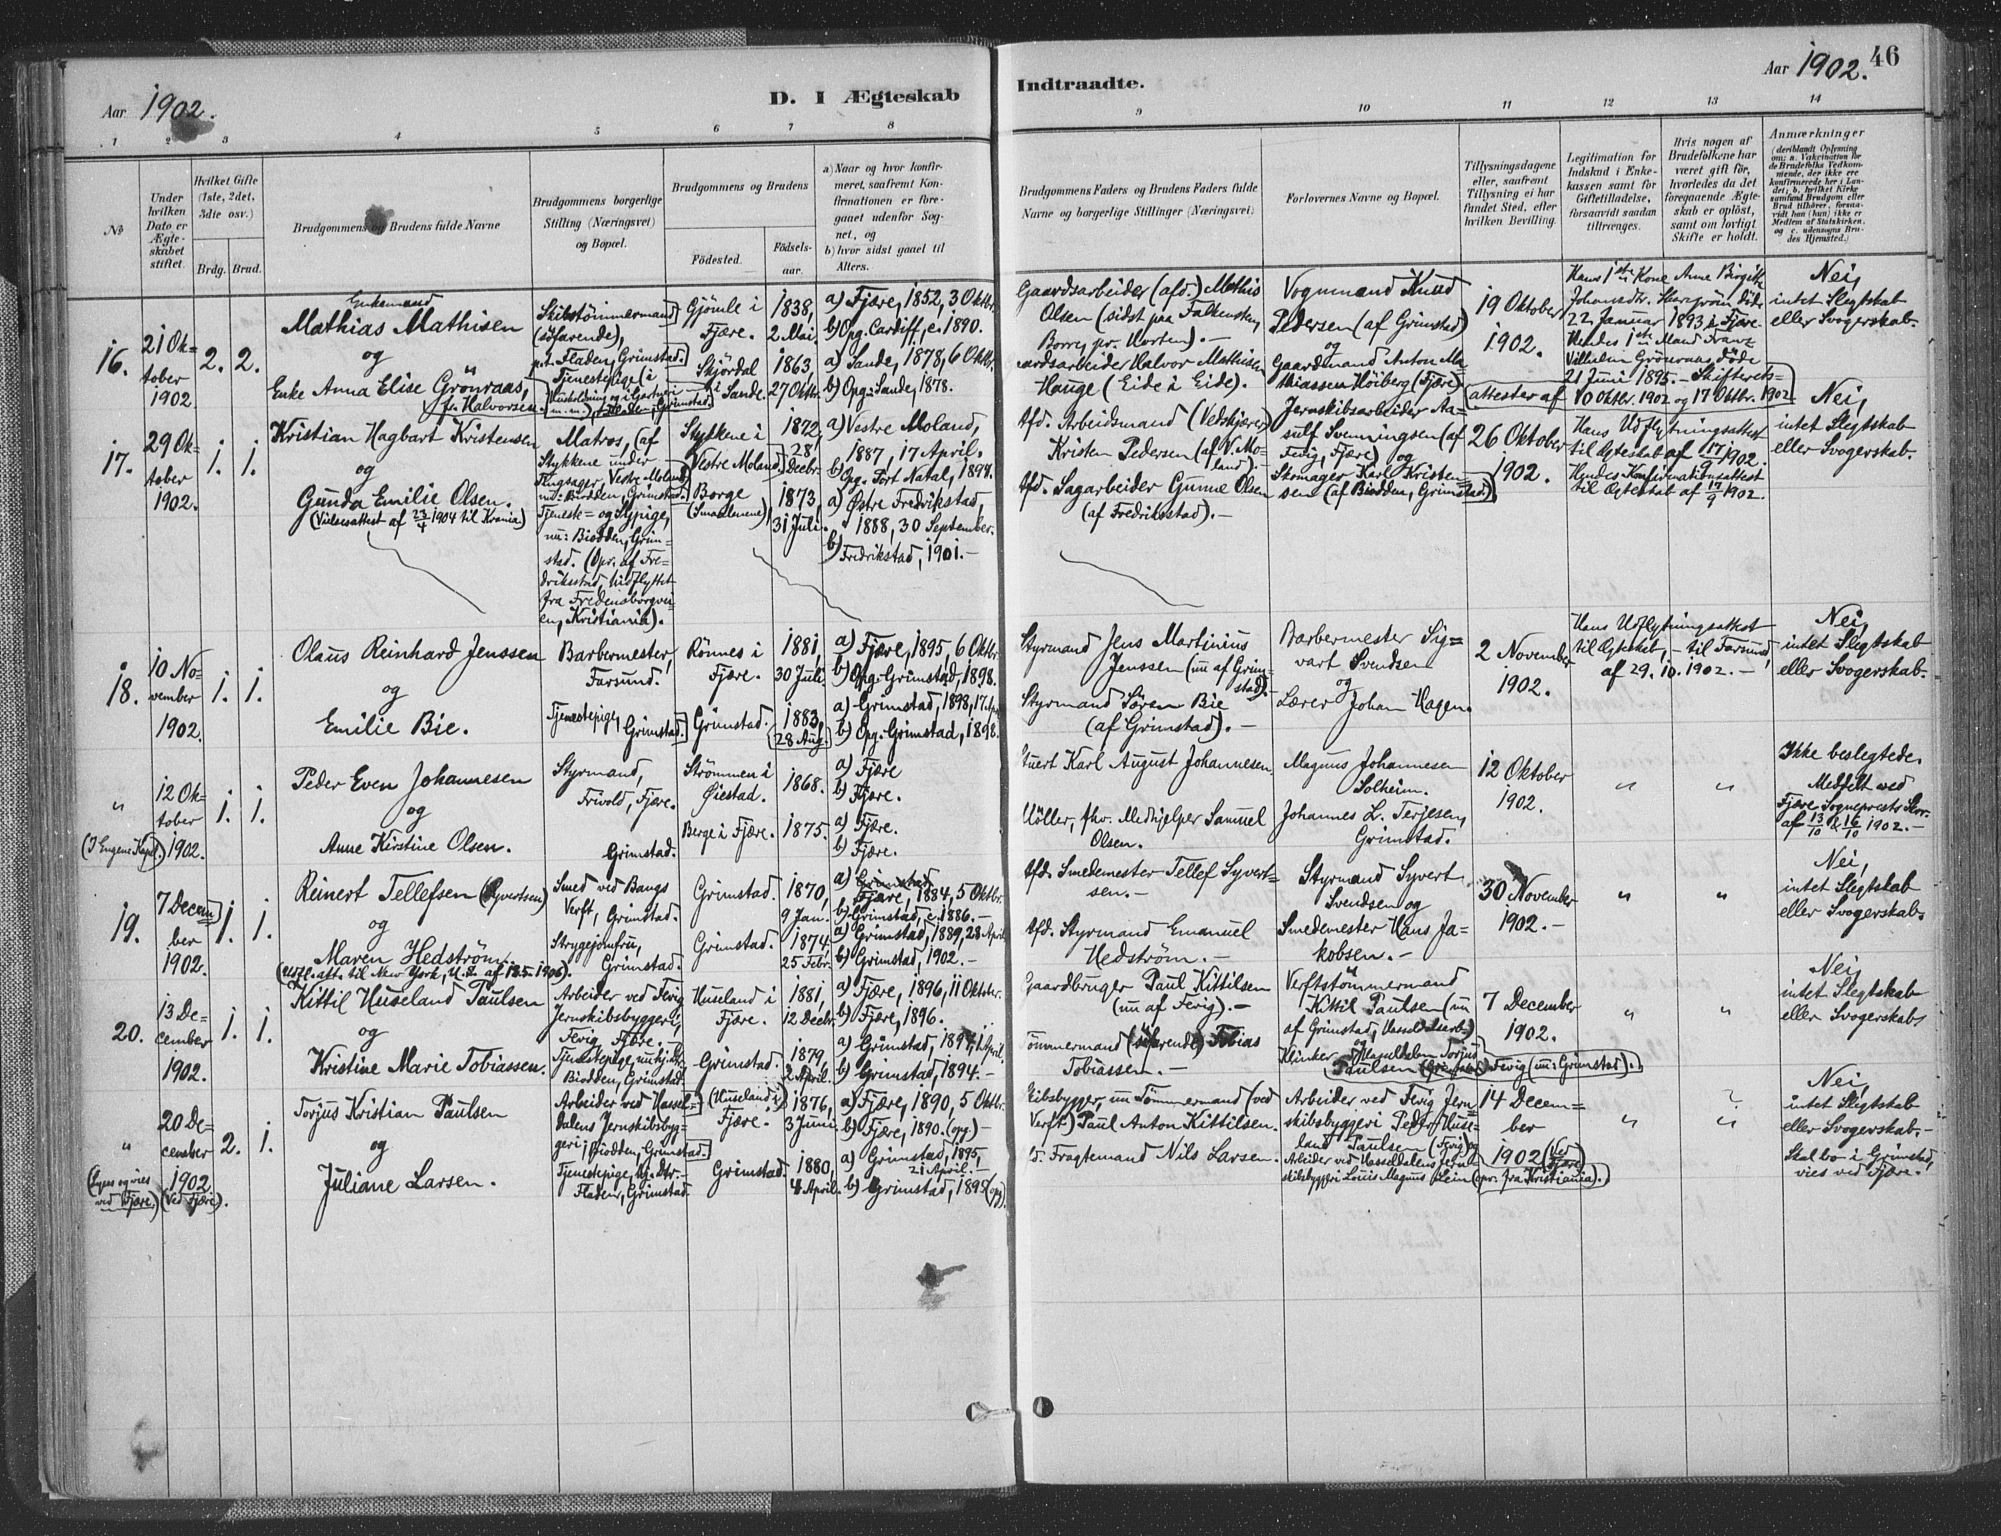 Aar 1902.
D. I Ægteskab
Indtraadte.
Aar 1902. 46
1 2 3 4 5 6 7 8 9 10 11 12 13 14
No
Under hvilken Dato er Ægteskabet stiftet.
Hvilket Gifte (1ste, 2det, 3die osv.)
Brdg. Brud.
Brudgommens og Brudens fulde Navne
Brudgommens borgerlige Stilling (Næringsvei) og Bopæl.
Brudgommens og Brudens
Födested.
Födselsaar.
a) Naar og hvor konfirmeret, saafremt Konfirmationen er foregaaet udenfor Sognet, og
b) hvor sidst gaaet til Alters.
Brudgommens Faders og Brudens Faders fulde Navne og borgerlige Stillinger (Næringsvei)
Forlovernes Navne og Bopæl.
Tillysningsdagene eller, saafremt Tillysning ei har fundet Sted, efter hvilken Bevilling.
Legitimation for Indskud i Enkekassen samt for Giftetilladelse, forsaavidt saadan tiltrænges.
Hvis nogen af Brudefolkene har været gift för, hvorledes da det foregaaende Ægteskab er oplöst, samt om lovligt Skifte er holdt.
Anmærkninger
16.
21 Oktober 1902
2. 2.
Enkemand
Mathias Mathisen
og
Enke Anna Elise Grönraas,
f. Halvorsen
Skibstömmermand
(söfarende),
p.t. Fladen, Grimstad.
Tjenestepige (i
Fladen, Grimstad.
Gjömle i
Fjære.
Skjördal
i Sande.
1838,
2 Mai.
1863,
27 Oktbr.
a) Fjære, 1852, 3 Oktbr.
b) Opg. Cardiff, c. 1890.
a) Sande, 1878, 6 Oktbr.
b) Opg. Sande, 1878.
Gaardsarbeider (afd.) Mathis
Olsen (sidst paa Falkensten,
Borre pr. Horten). —
Gaardsarbeider Halvor Mathisen
Hauge (Eide i Eide).
Vognmand Knud
Pedersen (af Grimstad)
og
Gaardmand Anton Mathiassen Höiberg (Fjære)
19 Oktober
1902.
Hans 1ste Kone Anne Birgitte
Johansdtr. döde
22 Januar 1893 i Fjære
Hendes 1ste Mand Franz
Vilhelm Grönraas döde
21 Juni 1895. — Skifteretsattester af 10 Oktbr. 1902 og 17 Oktbr. 1902
Nei,
intet Slegtskab
eller Svogerskab.
17.
29 Oktober 1902.
1. 1.
Kristian Hagbart Kristensen
og
Gunda Emilie Olsen.
(Vielsesattest af 23/4 1904 til Krania)
Matros, (af
Stykkene under
Vestre Moland)
nu: Biodden, Grimstad.
Tjenesk= og Sypige,
nu: Biodden, Grimstad. (Opr. af Fredriksstad, udflyttet
fra Fredensborgveien, Kristiania).
Stykkene i
Vestre Moland
Borge
(Smaalenene)
1872,
28 Decbr.
1873,
31 Juli.
a) Vestre Moland,
1887, 17 April.
b) Opg. Port Natal, 1898.
a) Östre Fredrikstad,
1888, 30 September.
b) Fredrikstad, 1901. —
Afd. Arbeidsmand (Vedskjærer)
Kristen Pedersen (af V. Moland). —
Afd. Sagarbeider Gunne Olsen
(af Fredriksstad). —
Jernskibsarbeider Aasulf Svenningsen (af
Fevig, Fjære) og
Skomager Karl Kristensen (af Biodden, Grimstad)
26 Oktober
1902.
Hans Udflytningsattest
til Ægteskab af 17/9 1902.
Hendes Konfirmationsattest
til Ægteskab af 17/9 1902.
Nei,
intet Slegtskab
eller Svogerskab.
18.
10 November 1902.
1. 1.
Olaus Reinhard Jenssen
og
Emilie Bie.
Barbermester,
Farsund.
Tjenestepige,
Grimstad.
Rönnes i
Fjære.
Grimstad.
1881,
30 Juli.
1883,
28 Aug.
a) Fjære, 1895, 6 Oktbr.
b) Opg. Grimstad, 1898.
a) Grimstad, 1898, 17. Apr.
b) Opg. Grimstad, 1898.
Styrmand Jens Martinius
Jenssen (nu af Grimstad). —
Styrmand Sören Bie
(af Grimstad). —
Barbermester Sigvart Svendsen
og
Lærer Johan Hagen.
2 November
1902.
Hans Udflytningsattest
til Ægteskab, — til Farsund,
af 29. 10. 1902. —
Nei,
intet Slegtskab
eller Svogerskab.
"
(I Engene Kapel.)
12 Oktober 1902.
1. 1.
Peder Even Johannesen
og
Anne Kirstine Olsen.
Styrmand,
Frivold, Fjære.
Grimstad.
Strömmen i
Öiestad.
Berge i Fjære.
1868.
1875.
a) Fjære
b) Fjære.
a) Fjære.
b) Fjære.
Karl August Johannesen
Möller, fhv. Medhjelper Samuel
Olsen.
Magnus Johannesen
Solheim.
Johannes L. Terjesen,
Grimstad.
12 Oktober
1902.
" "
Ikke beslegtede.
Medfelt ved
Fjære Sogneprests Skr.
af 13/10 & 16/10 1902. —
19.
7 December 1902.
1. 1.
Reinert Tellefsen (Syvertsen)
og
Maren Hedström.
(Udfl. att. til New York, U.S. af 18.5.1906).
Smed ved Bangs
Verft, Grimstad.
Strygejomfru,
Grimstad.
Grimstad.
Grimstad.
1870,
9 Jan.
1874,
25 Febr.
a) Grimstad
Fjære, 1884, 5 Oktbr.
b) Grimstad, c. 1886. —
a) Grimstad, 1889, 28 April
b) Grimstad, 1902. —
Afd. Smedemester Tellef Syvertsen. —
Afd. Styrmand Emanuel
Hedström. —
Styrmand Syvert
Svendsen og
Smedemester Hans Jakobsen. —
30 November
1902. —
" "
Nei,
intet Slegtskab
eller Svogerskab.
20.
13 December 1902.
1. 1.
Kittil Huseland Paulsen
og
Kristine Marie Tobiassen.
Arbeider ved Fevig
Jernskibsbyggeri,
Fevig, Fjære.
Tjenestepige,
Biodden, Grimstad.
Huseland i
Fjære.
Grimstad.
1881,
12 Decbr.
1879,
2 April.
a) Fjære, 1896, 11 Oktbr.
b) Fjære, 1896.
a) Grimstad, 1894, 1 April.
b) Grimstad, 1894. —
Gaardbruger Paul Kittilsen
(nu af Fevig). —
Tömmermand (söfarende) Tobias
Tobiassen. —
Verftstömmermand
Kittil Paulsen (nu
af Grimstad, Hasseldalsverft)
og
Klinker Torjus
Paulsen Fevig (nu: Grimstad).
7 December
1902.
" "
Nei,
intet Slegtskab
eller Svogerskab
"
(Lyses og vies
ved Fjære.)
20 December 1902
(Ved Fjære).
2. 1.
Torjus Kristian Paulsen
og
Juliane Larsen.
Arbeider ved Hasseldalens Jernskibsbyggeri, Biodden, Grimstad.
Tjenestepige, hj.
Fladen, Grimstad.
(Huseland i)
Fjære.
Grimstad.
1876,
3 Juni.
1880,
4 April.
a) Fjære, 1890, 5 Oktbr.
b) Fjære, 1890. (opg) —
a) Grimstad, 1895,
21 April. —
b) Grimstad, 1895 (opg).
Skibsbygger, nu Tömmermand (ved
Verft) Paul Anton Kittilsen.
Fragtemand Nils Larsen.
Arbeider ved Fevig Jernskibsbyggeri Peder Huseland Paulsen (Fevig) og
Arbeider ved Hasseldalens Jernskibsbyggeri Louis Magnus Lein (opr. fra Kristiania).
14 December
1902 (Ved
Fjære)
" "
Nei,
intet Slegtskab
eller Svogerskab. —
Skal bo i Grimstad,
vies ved Fjære.